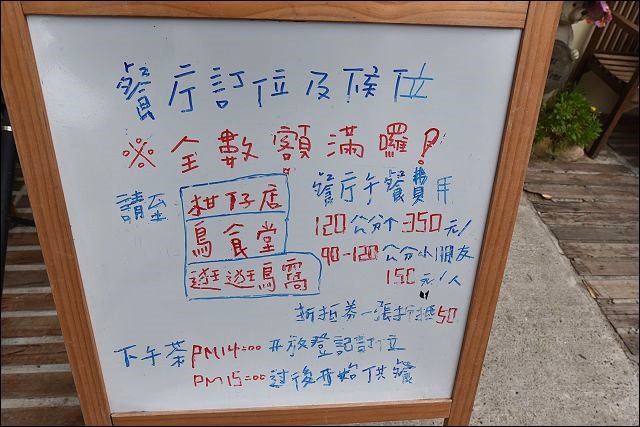 餐厅訂位及候位
※全數額滿囉!
請至
柑仔店
鳥食堂
逛逛鳥窩
餐厅午餐費用
120公分个350元/
90-120公分小朋友
150元/人
折抵券一張折抵50
下午茶PM14:00开放登記訂位
PM15:00过後开始供餐